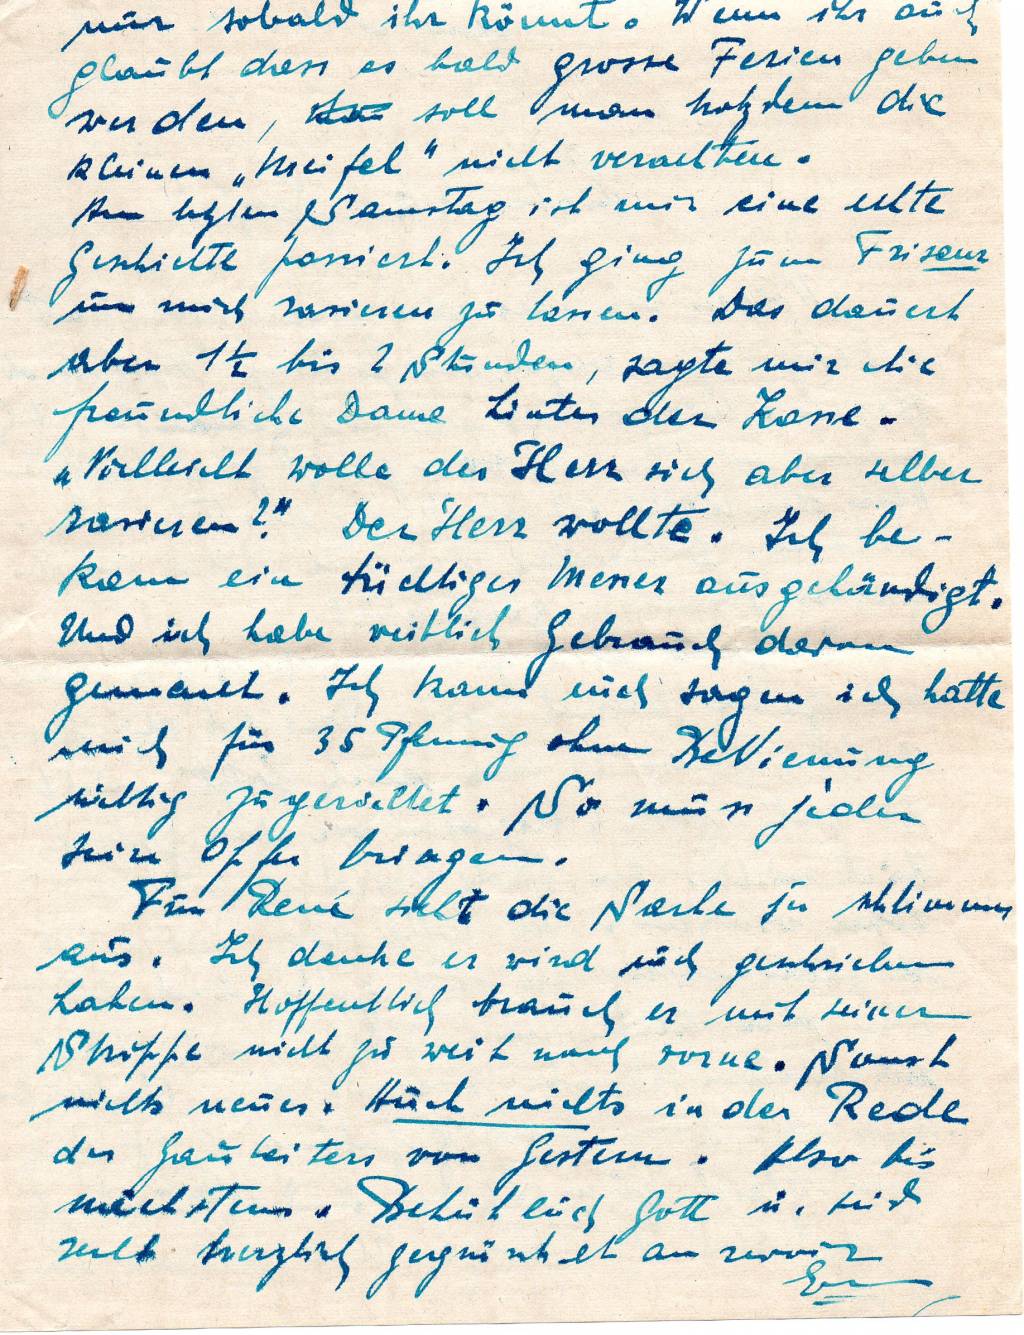 nur sobald ihr könnt. Wenn ihr auch
glaubt dass es bald grosse Ferien geben
werden, soll man trotzdem die
kleinen „Zipfel“ nicht verachten.
Am letzten Samstag ist mir eine echte
Geschichte passiert. Ich ging zum Friseur
um mich rasieren zu lassen. Das dauert
aber 1½ bis 2 Stunden, sagte mir die
freundliche Dame hinter der Kasse.
„Vielleicht wolle der Herr sich aber selber
rasieren?“ Der Herr wollte. Ich be-
kam ein tüchtiges Messer ausgehändigt.
Und ich habe weidlich Gebrauch davon
gemacht. Ich kann euch sagen ich hatte
mich für 35 Pfennig ohne Bedienung
richtig zugerichtet. So muss jeder
sein Opfer bringen.
Für René sieht die Sache ja schlimmer
aus. Ich denke er wird euch geschrieben
haben. Hoffentlich brauch er mit seiner
Strippe nicht zu weit nach vorne. Sonst
nichts neues. Auch nichts in der Rede
des Gauleiters von Gestern. Also bis
nächstens. Behüt euch Gott u. seid
recht herzlich gegrüsst